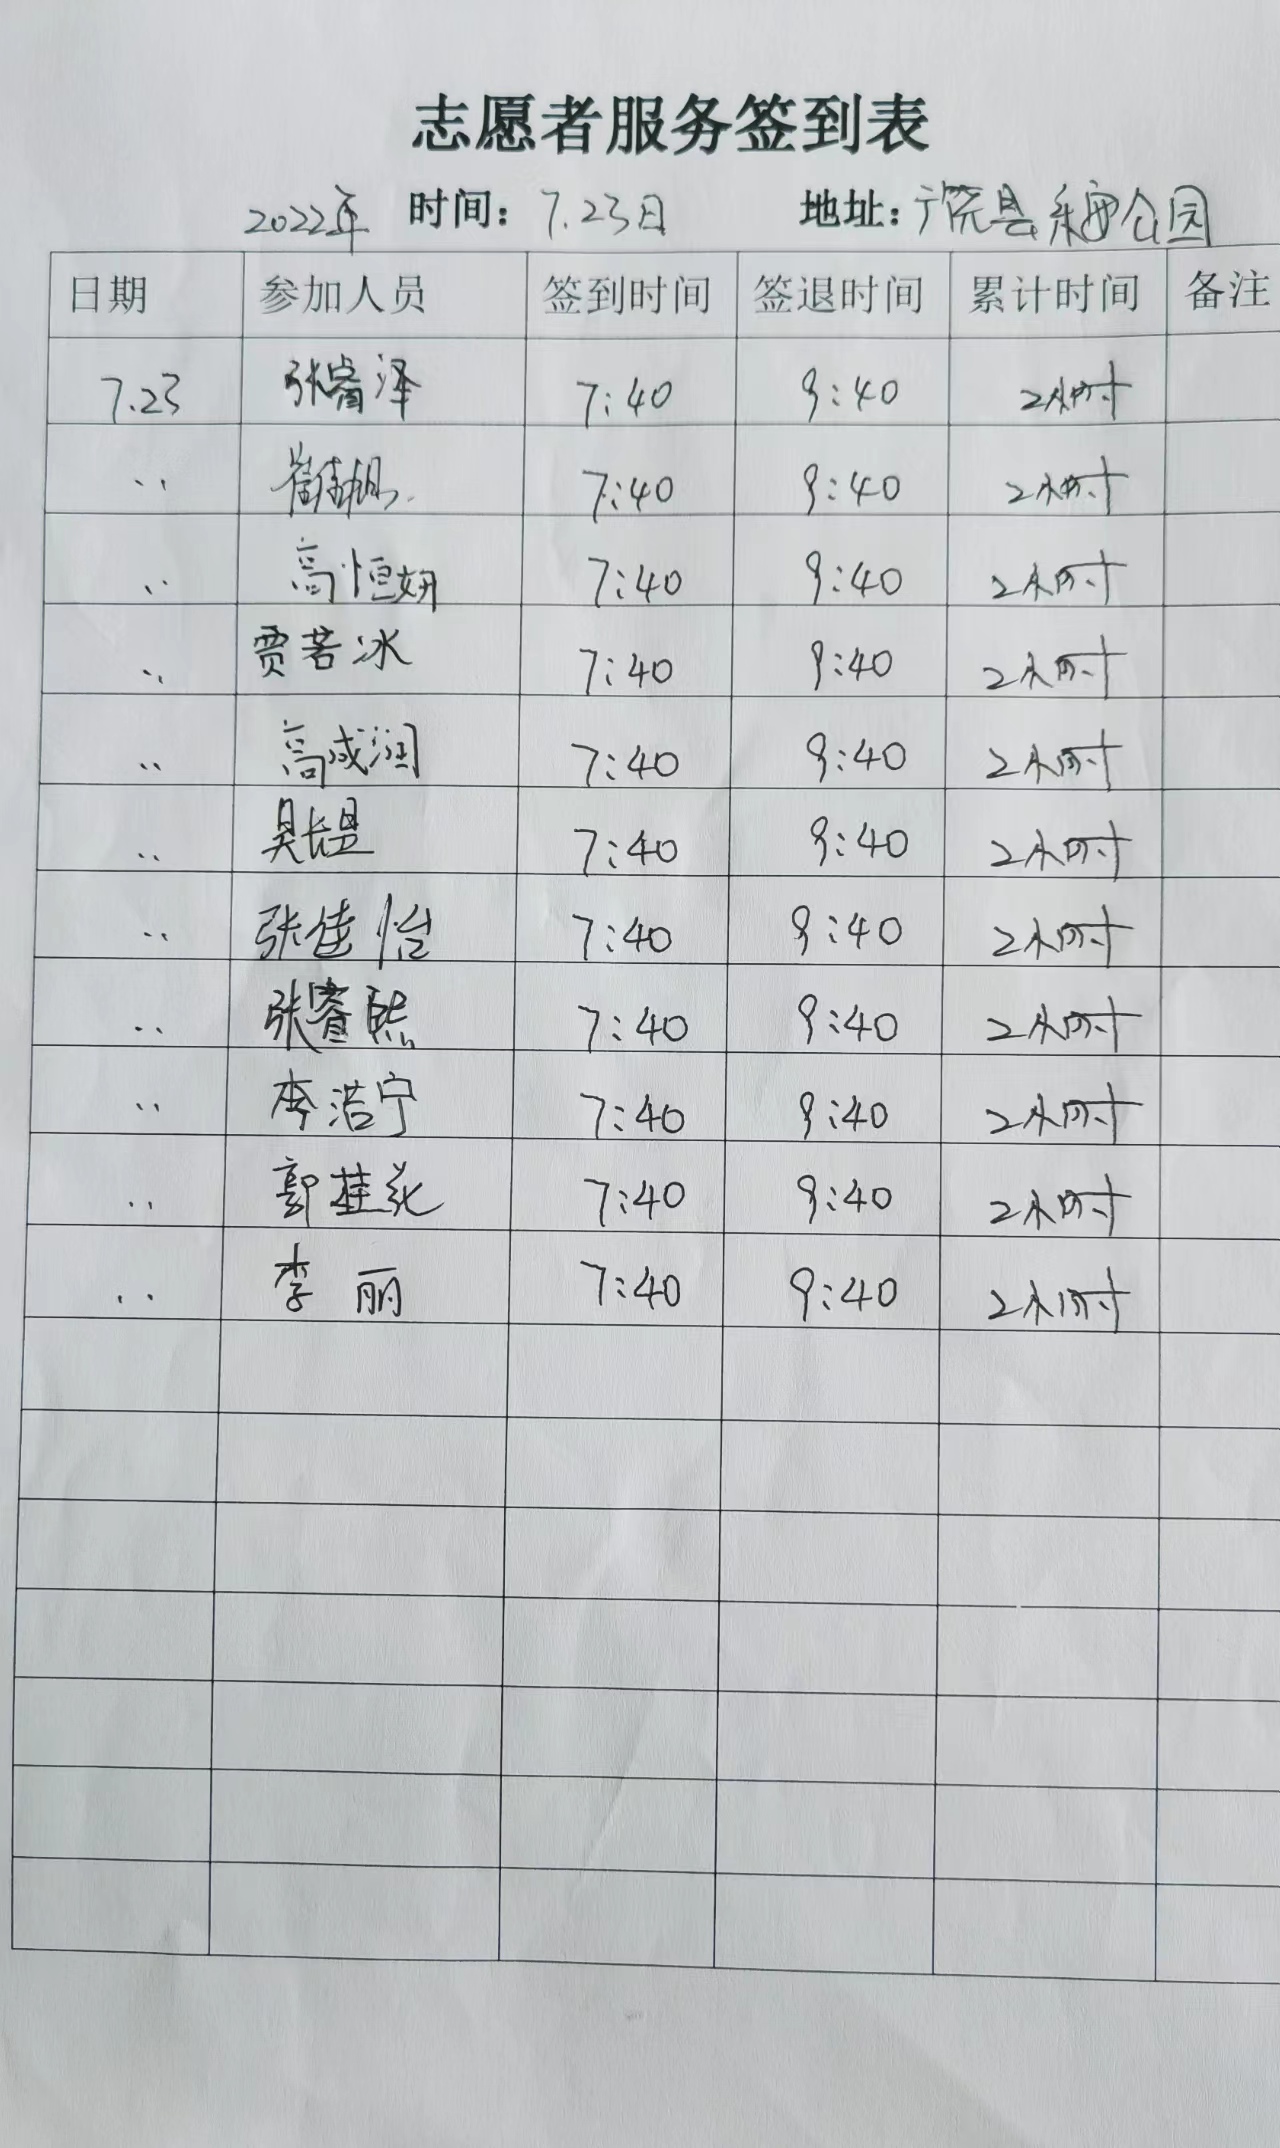 志愿者服务签到表
2022年 时间：7.23日 地址：广饶县乐安公园
日期 参加人员 签到时间 签退时间 累计时间 备注
7.23 张睿泽 7:40 9:40 2小时
〃 崔佳旭 7:40 9:40 2小时
〃 高恒妍 7:40 9:40 2小时
〃 贾若冰 7:40 9:40 2小时
〃 高成润 7:40 9:40 2小时
〃 吴长昱 7:40 9:40 2小时
〃 张佳怡 7:40 9:40 2小时
〃 张睿熙 7:40 9:40 2小时
〃 李浩宁 7:40 9:40 2小时
〃 郭桂花 7:40 9:40 2小时
〃 李丽 7:40 9:40 2小时